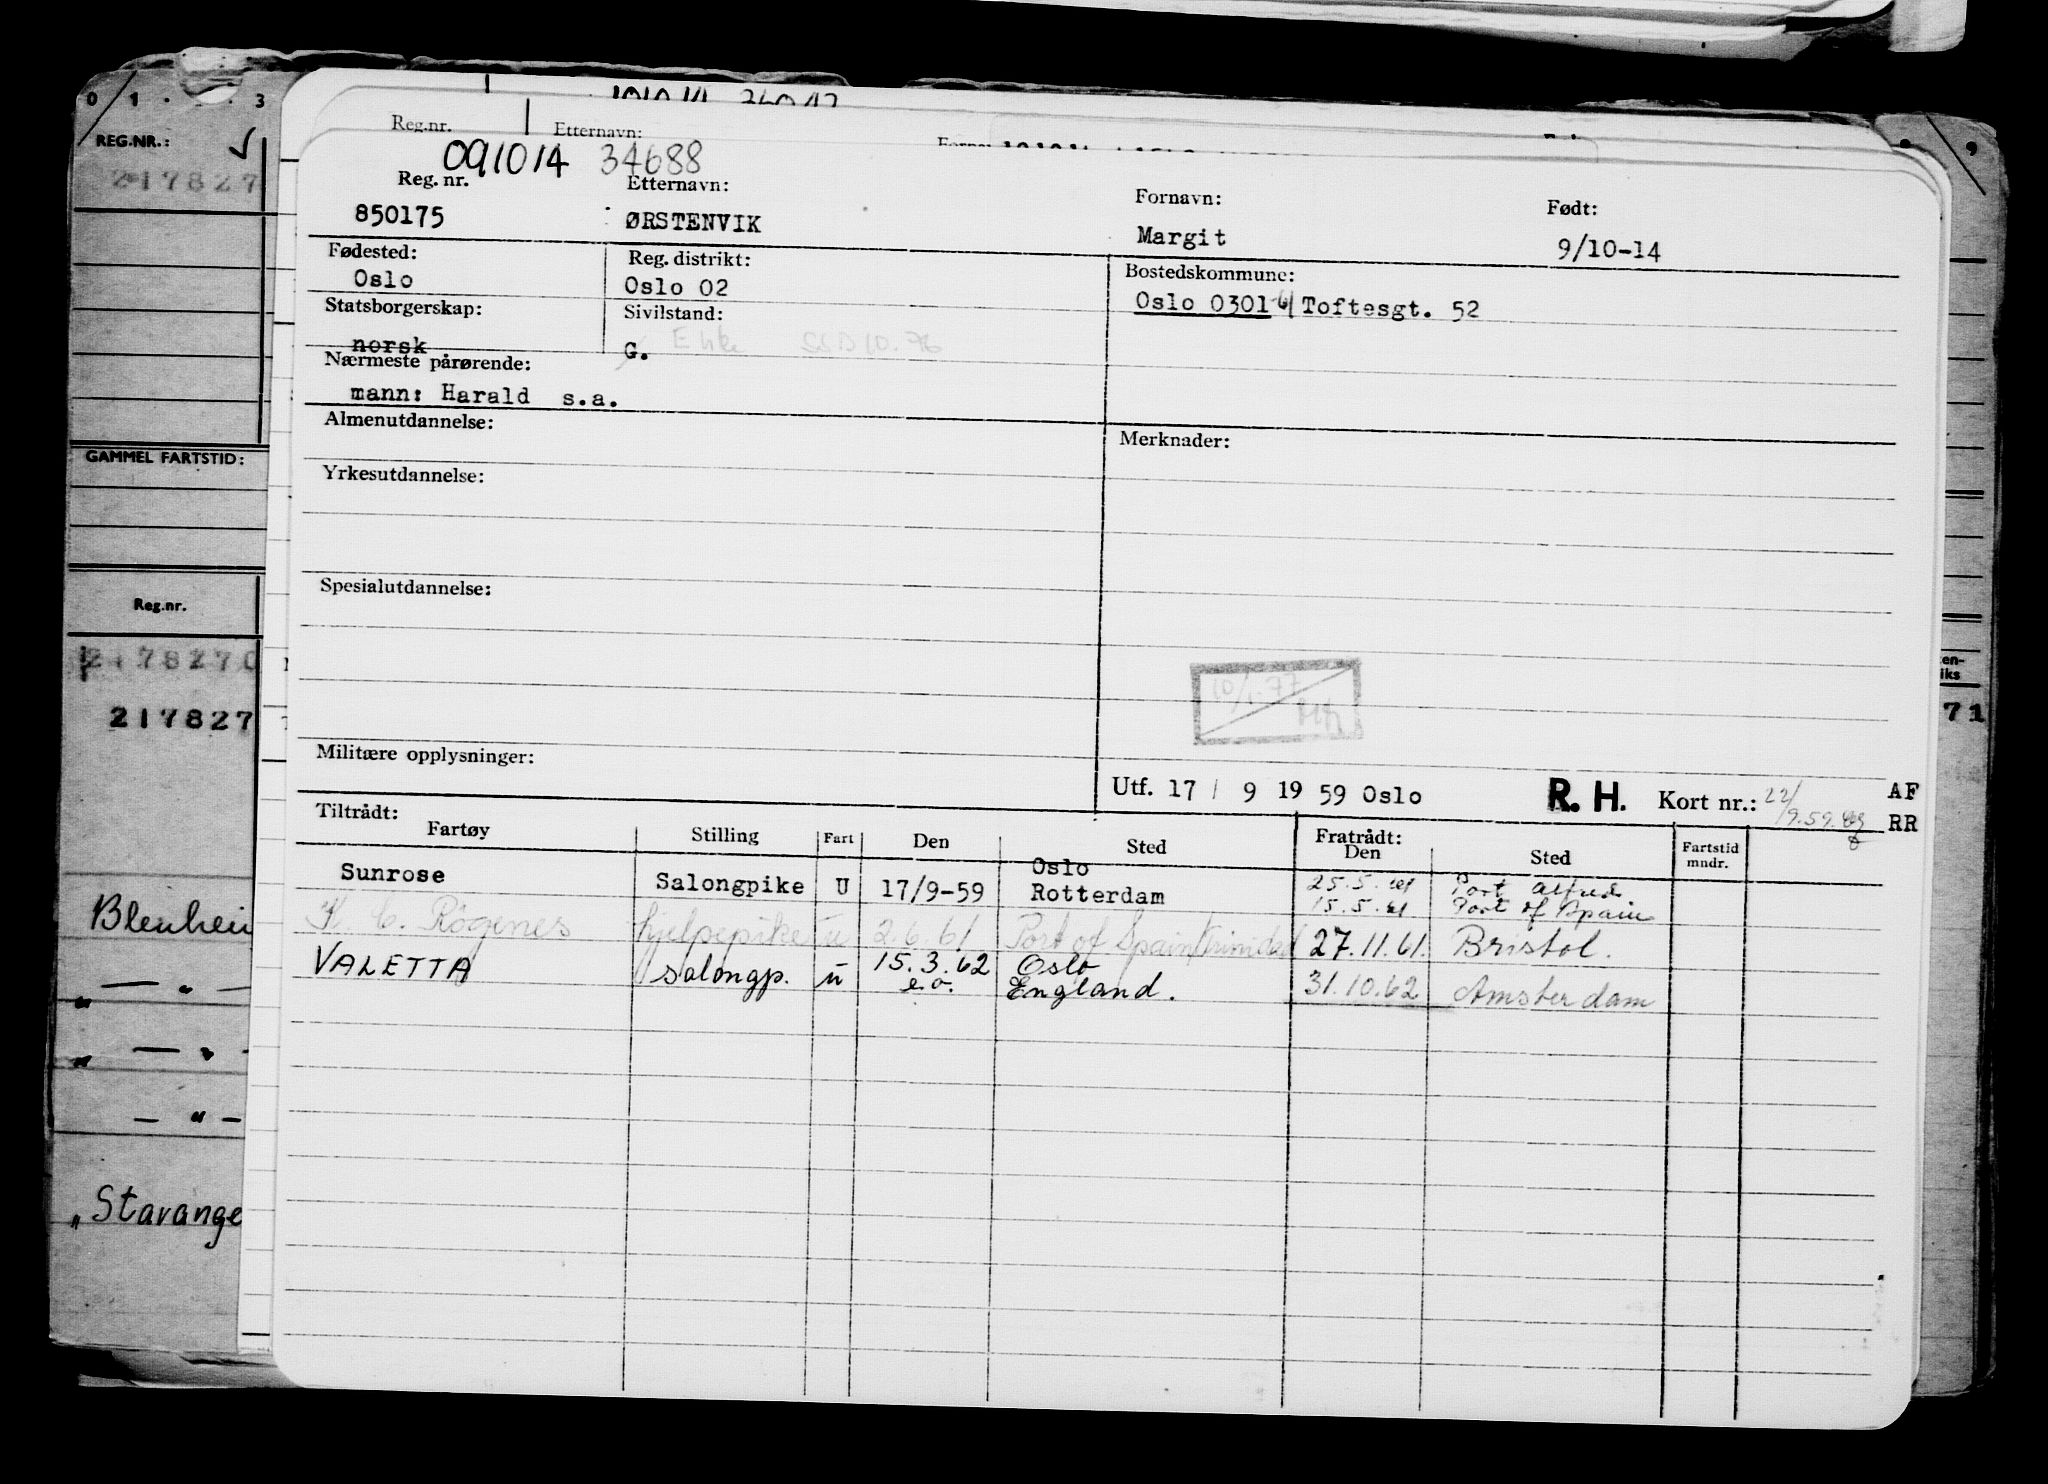 0 1 3
REG.NR.:
217827
GAMMEL FARTSTID:
Reg.nr.
2178270
217827
Blenhein
„ — „ —
„ — „ -
— „ —
„Stavange
Reg.nr. Etternavn:
091014 34688
Reg. nr. Etternavn: Fornavn: Født:
850175 ØRSTENVIK Margit 9/10-14
Fødested: Reg. distrikt: Bostedskommune:
Oslo Oslo 02 Oslo 0301 Toftesgt. 52
Statsborgerskap: Sivilstand:
norsk G. Enke SSB 10.76
Nærmeste pårørende:
mann: Harald s.a.
Almenutdannelse: Merknader:
Yrkesutdannelse:
Spesialutdannelse:
10/1.77
Militære opplysninger:
Utf. 17 / 9 19 59 Oslo R. H. Kort nr.: 22/9.59. AF
RR
Tiltrådt: Fratrådt:
Fartøy Stilling Fart Den Sted Den Sted Fartstid mndr.
Sunrose Salongpike U 17/9-59 Oslo Rotterdam 25.5.61 Port Alfred
15.5.61 Port of Spain
K. C. Rogenes hjelpepike u 2.6.61 Port of Spain Trinidad 27.11.61. Bristol.
VALETTA salongp. u 15.3.62 Oslo
e.o. England. 31.10.62 Amsterdam
en-
iks
71